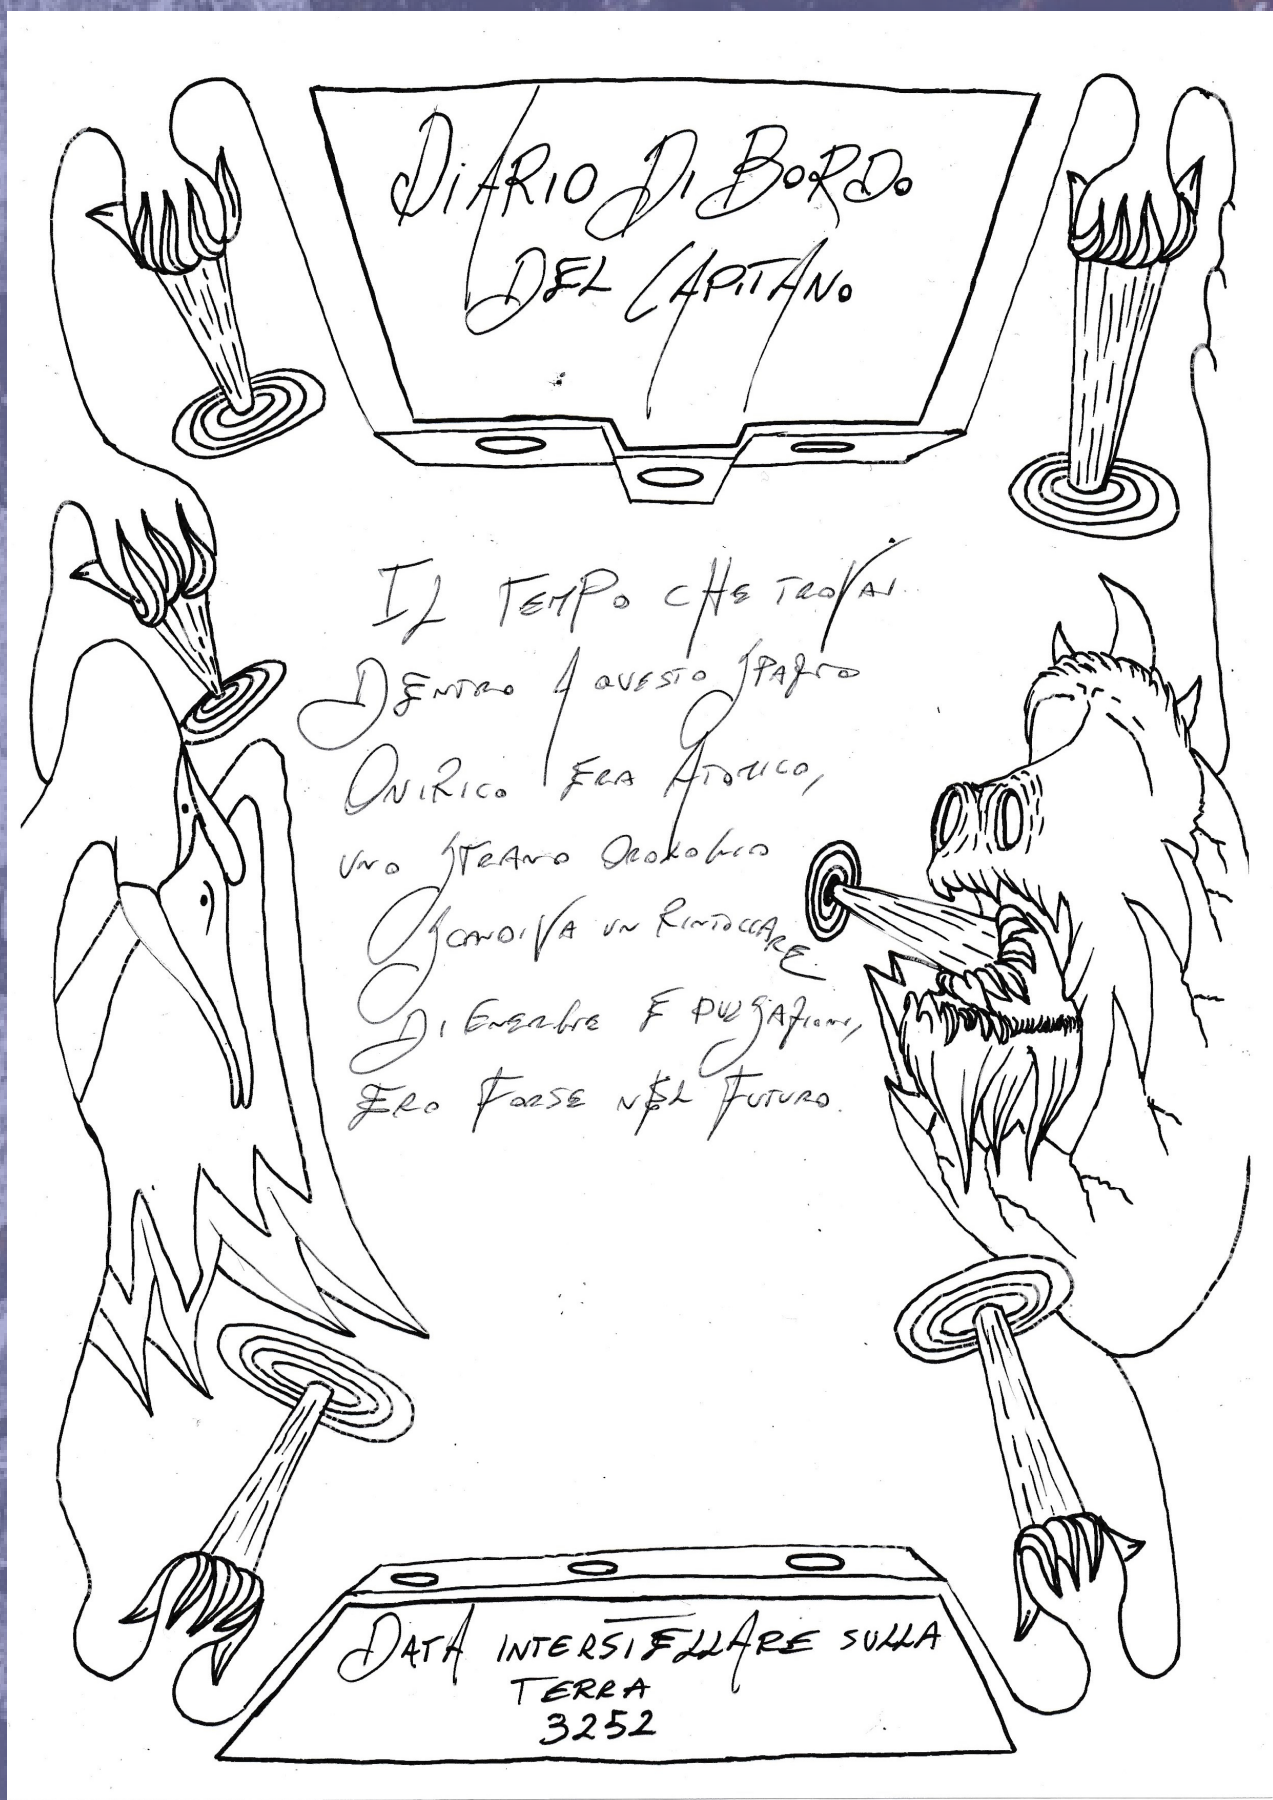 DIARIO DI BORDO
DEL CAPITANO
IL TEMPO CHE TROVAI
DENTRO A QUESTO SPAZIO
ONIRICO ERA ATOMICO,
UNO STRANO OROLOGIO
SCANDIVA UN RINTOCCARE
DI ENERGIE E PULSAZIONI,
ERO FORSE NEL FUTURO.
DATA INTERSTELLARE SULLA
TERRA
3252